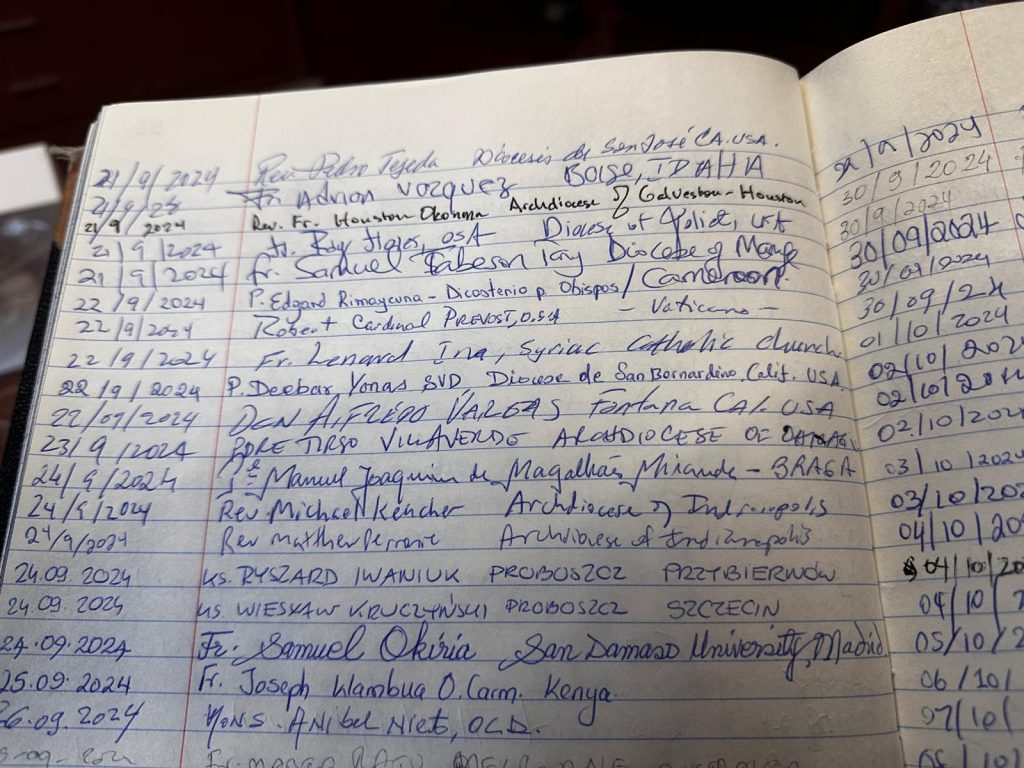 21/9/2024 Rev. Pedro Tejeda Diócesis de San José CA. USA.
21/9/24 Fr. Adrian Vazquez BOISE, IDAHIA
21/9/2024 Rev. Fr. Houston Okonma Archdiocese of Galveston-Houston
21/9/2024 Fr. Ray Flores, OSA Diocese of Joliet,
21/9/2024 Fr. Samuel Tabeson Diocese of Mamfe
22/9/2024 P. Edgard Rimaycuna - Dicasterio p. Obispos / Cameroon.
22/9/2024 Robert Cardinal PREVOST, O.S.A - Vaticano -
22/9/2024 Fr. Lenard Ina, Syriac Catholic church
22/9/2024 P. Deebar Yonas SVD, Diocese de San Bernardino, Calif. USA.
22/09/2024 DCN ALFREDO VARGAS Fontana CAL. USA
23/9/2024 PDRE TIRSO VILLAVERDE ARCHDIOCESE OF
24/9/2024 Manuel Joaquim de Magalhães Miranda - BRAGA
24/9/2024 Rev. Michael Keucher Archdiocese of Indianapolis
24/9/2024 Rev Matthew Perronie Archdiocese of Indianapolis
24.09.2024 KS. RYSZARD IWANIUK PROBOSZCZ PRZYBIERNÓW
24.09.2024 KS. WIESŁAW KRUCZYŃSKI PROBOSZCZ SZCZECIN
24.09.2024 Fr. Samuel Okiria San Damaso University, Madrid.
25.09.2024 Fr. Joseph Wambua O.Carm. Kenya.
26.09.2024 MONS. ANIBEL NIETO, OCD.
30/9/2024
30/9/2024
30/09/2024
30/09/2024
30/09/24
01/10/2024
02/10/202
02/10/20
02/10/202
03/10/2024
03/10/202
04/10/20
04/10/20
04/10/
05/10/2
06/10/
07/10/